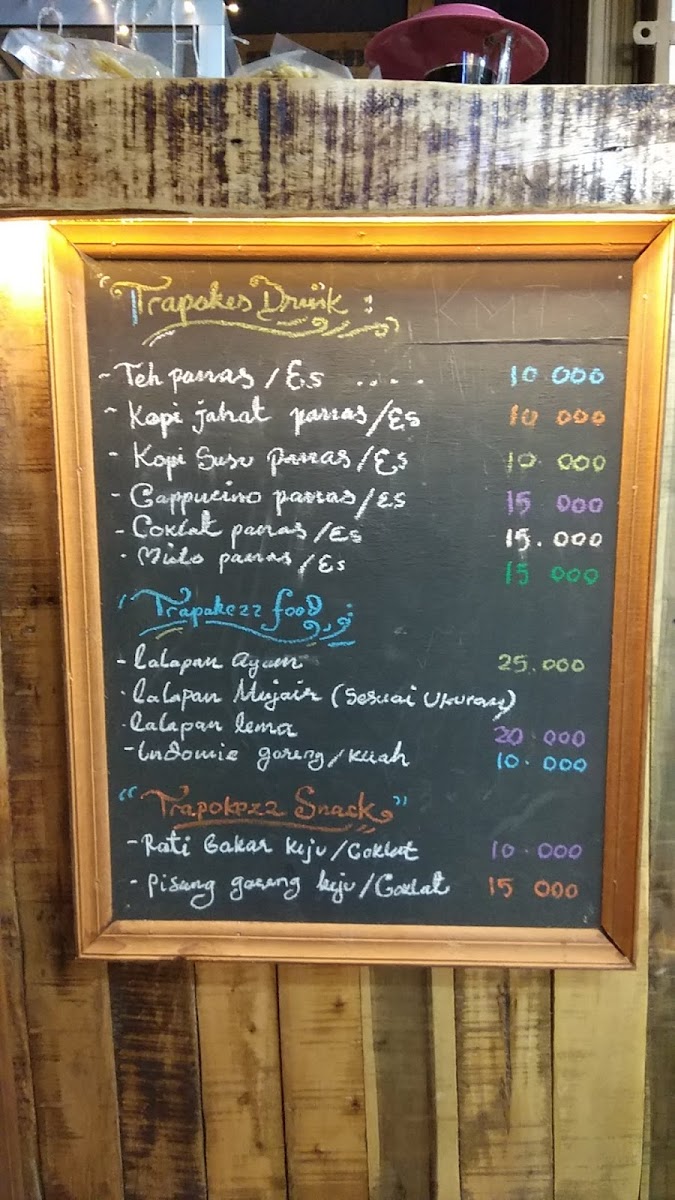 "Trapokes Drink :
KMT
- Teh panas / Es .... 10 000
- Kopi jahat panas/Es 10 000
- Kopi Susu panas/Es 10. 000
- Cappucino panas/Es 15 000
- Coklat panas/Es 15.000
- Milo panas/Es 15 000
"Trapakezz food :
- lalapan Ayam 25.000
- lalapan Mujair (Sesuai Ukuran)
- lalapan lema 20.000
- Indomie goreng/kuah 10.000
"Trapokezz Snack"
- Roti Bakar keju/Coklat 10.000
- Pisang goreng keju/Coklat 15 000